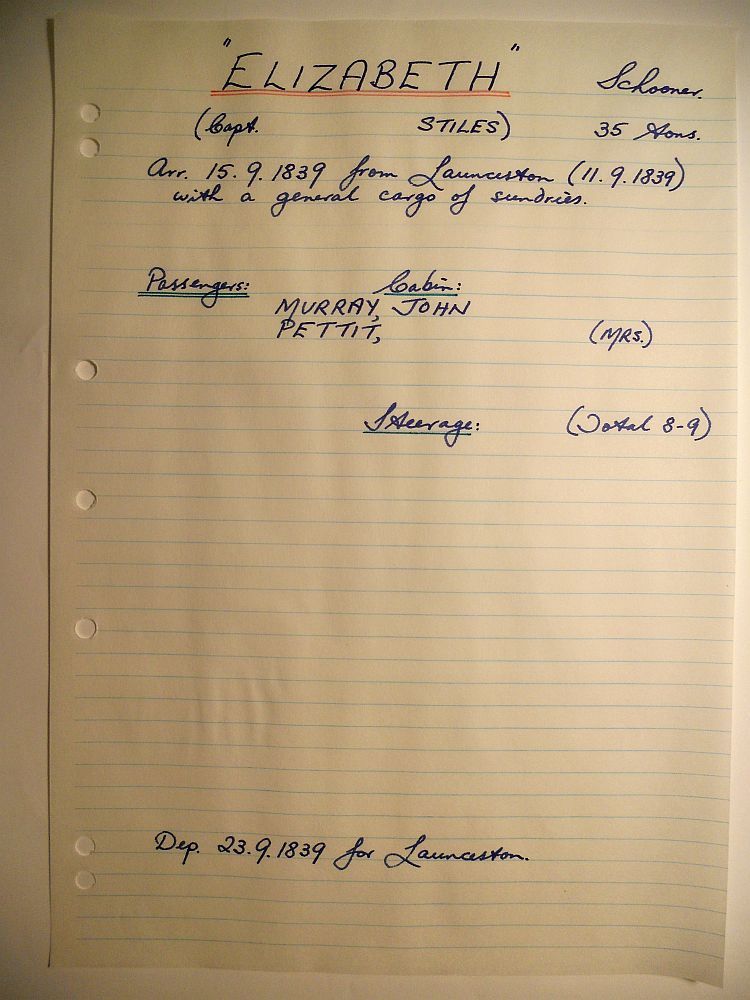 "ELIZABETH" Schooner.
(Capt. STILES) 35 tons.
Arr. 15.9.1839 from Launceston (11.9.1839)
with a general cargo of sundries.
Passengers: Cabin:
MURRAY, JOHN
PETTIT, (MRS.)
Steerage: (Total 8-9)
Dep. 23.9.1839 for Launceston.